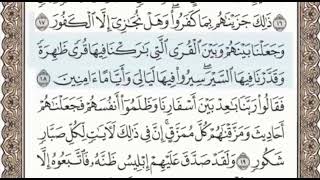 ١٦ ذَٰلِكَ جَزَيْنَٰهُم بِمَا كَفَرُوا۟ ۖ وَهَلْ نُجَٰزِىٓ إِلَّا ٱلْكَفُورَ ١٧
وَجَعَلْنَا بَيْنَهُمْ وَبَيْنَ ٱلْقُرَى ٱلَّتِى بَٰرَكْنَا فِيهَا قُرًى ظَٰهِرَةً
وَقَدَّرْنَا فِيهَا ٱلسَّيْرَ ۖ سِيرُوا۟ فِيهَا لَيَالِىَ وَأَيَّامًا ءَامِنِينَ ١٨
فَقَالُوا۟ رَبَّنَا بَٰعِدْ بَيْنَ أَسْفَارِنَا وَظَلَمُوٓا۟ أَنفُسَهُمْ فَجَعَلْنَٰهُمْ
أَحَادِيثَ وَمَزَّقْنَٰهُمْ كُلَّ مُمَزَّقٍ ۚ إِنَّ فِى ذَٰلِكَ لَءَايَٰتٍ لِّكُلِّ صَبَّارٍ
شَكُورٍ ١٩ وَلَقَدْ صَدَّقَ عَلَيْهِمْ إِبْلِيسُ ظَنَّهُۥ فَٱتَّبَعُوهُ إِلَّا